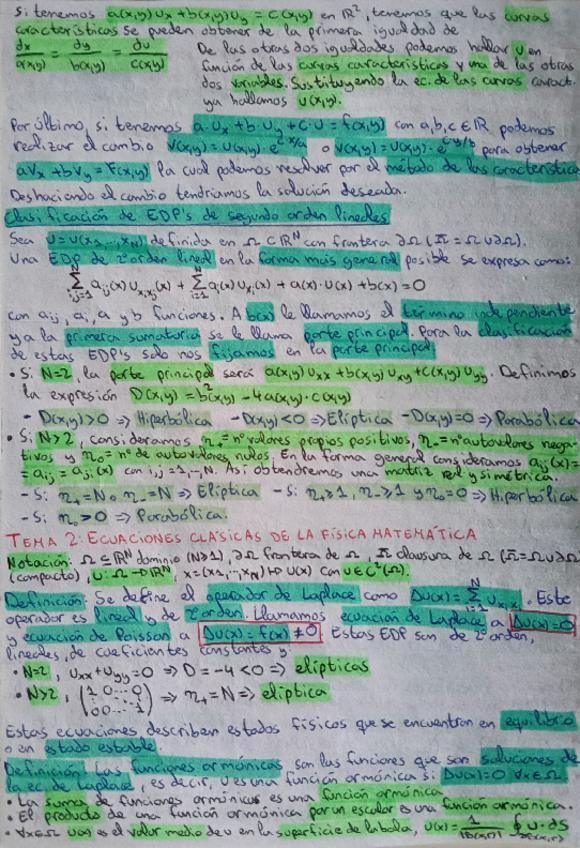 Si tenemos a(x,y)ux + b(x,y)uy = c(x,y) en ℝ², tenemos que las curvas
características se pueden obtener de la primera igualdad de
dx/a(x,y) = dy/b(x,y) = du/c(x,y)
De las otras dos igualdades podemos hallar u en
función de las curvas características y una de las otras
dos variables. Sustituyendo la ec. de las curvas caract.
ya hallamos u(x,y).
Por último, si tenemos a·ux + b·uy + c·u = f(x,y) con a,b,c ∈ ℝ podemos
realizar el cambio v(x,y) = u(x,y)·e^(cx/a) o v(x,y) = u(x,y)·e^(cy/b) para obtener
avx + bvy = f(x,y) la cual podemos resolver por el método de las características
Deshaciendo el cambio tendríamos la solución deseada.
Clasificación de EDP's de segundo orden lineales
Sea u = u(x1,...,xN) definida en Ω ⊂ ℝᴺ con frontera ∂Ω (Ω̅ = Ω ∪ ∂Ω).
Una EDP de 2º orden lineal en la forma más general posible se expresa como:
∑_{i,j=1}^N aij(x)u_{xixj}(x) + ∑_{i=1}^N ai(x)u_{xi}(x) + a(x)·u(x) + b(x) = 0
con aij, ai, a y b funciones. A b(x) le llamamos el término independiente
y a la primera sumatoria se le llama parte principal. Para la clasificación
de estas EDP's solo nos fijamos en la parte principal
• Si N=2, la parte principal será a(x,y)uxx + b(x,y)uxy + c(x,y)uyy. Definimos
la expresión D(x,y) = b²(x,y) - 4a(x,y)·c(x,y)
- D(x,y)>0 => Hiperbólica - D(x,y)<0 => Elíptica - D(x,y)=0 => Parabólica
• Si N>2, consideramos n₊ = nº valores propios positivos, n₋ = nº autovalores nega-
tivos y n₀ = nº de autovalores nulos. En la forma general consideramos aij(x) =
= aij = aji(x) con i,j = 1,..,N. Así obtendremos una matriz real y simétrica.
- Si n₊ = N o n₋ = N => Elíptica - Si n₊ ≥ 1, n₋ ≥ 1 y n₀ = 0 => Hiperbólica
- Si n₀ > 0 => Parabólica.
TEMA 2: ECUACIONES CLÁSICAS DE LA FÍSICA MATEMÁTICA
Notación: Ω ⊆ ℝᴺ dominio (N≥1), ∂Ω frontera de Ω, Ω̅ clausura de Ω (Ω̅ = Ω ∪ ∂Ω
(compacto), u: Ω → ℝᴺ, x = (x1,..,xN) ↦ u(x) con u ∈ C²(Ω).
Definición: Se define el operador de Laplace como Δu(x) = ∑_{i=1}^N u_{xixi}. Este
operador es lineal y de 2º orden. Llamamos ecuación de Laplace a Δu(x) = 0
y ecuación de Poisson a Δu(x) = f(x) ≠ 0. Estas EDP son de 2º orden,
lineales, de coeficientes constantes y:
• N=2, uxx + uyy = 0 => D = -4 < 0 => elípticas
• N>2, (1 0...0 0 0...1) => n₊ = N => elíptica
Estas ecuaciones describen estados físicos que se encuentran en equilibrio
o en estado estable.
Definición: Las funciones armónicas son las funciones que son soluciones de
la ec. de Laplace, es decir, u es una función armónica si Δu(x) = 0 ∀x∈Ω.
• La suma de funciones armónicas es una función armónica.
• El producto de una función armónica por un escalar es una función armónica.
• ∀x∈Ω u(x) es el valor medio de u en la superficie de la bola, u(x) = 1/|∂B(x,r)| ∮_{∂B(x,r)} u·dS